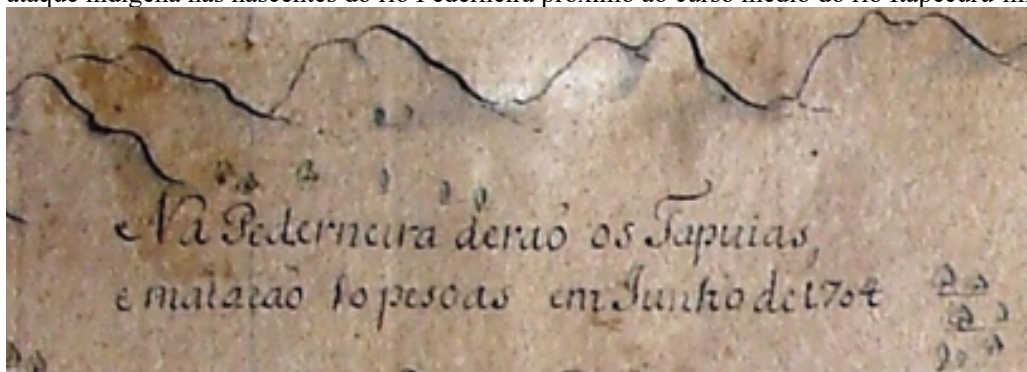 ataque indígena nas nascentes do rio Pederneira próximo ao curso médio do rio Itapecuru-mi
Na Pederneira deraõ os Tapuias,
e mataraõ 10 pesoas em Junho de 1704